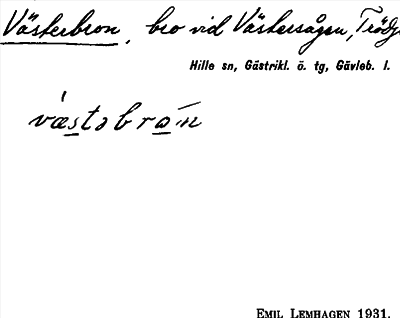 Västerbron, bro vid Västersågen,
Hille sn, Gästrikl. ö. tg, Gävleb. l.
EMIL LEMHAGEN 1931.